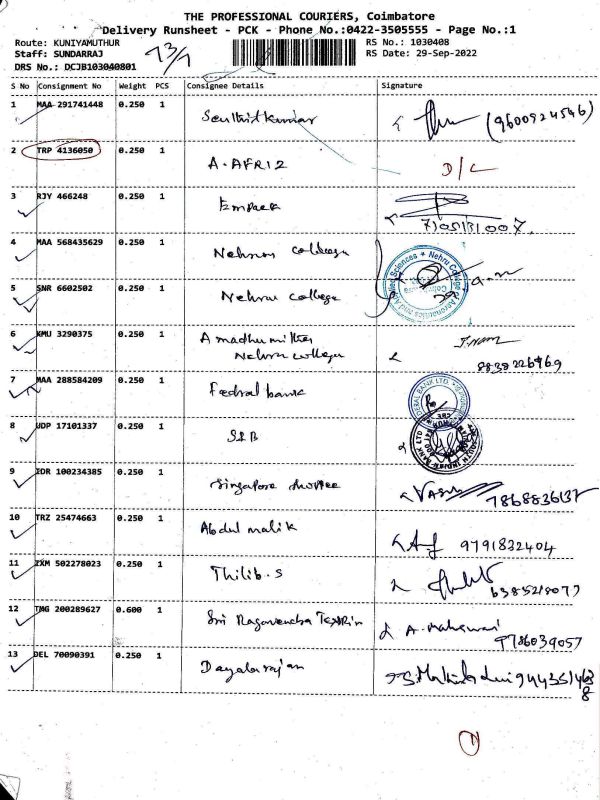 THE PROFESSIONAL COURIERS, Coimbatore
Delivery Runsheet - PCK - Phone No.:0422-3505555 - Page No.:1
Route: KUNIYAMUTHUR
RS No.: 1030408
Staff: SUNDARRAJ
RS Date: 29-Sep-2022
DRS No.: DCJB103040801
S No Consignment No Weight PCS Consignee Details Signature
1 MAA 291741448 0.250 1 Senthil kumar (9600924546)
2 TRP 4136050 0.250 1 A. AFRIZ D/L
3 RJY 466248 0.250 1
4 MAA 568435629 0.250 1 Nehru college
5 SNR 6602502 0.250 1 Nehru college
6 KMU 3290375 0.250 1 A madhumitha
Nehru college
8838226969
7 MAA 288584209 0.250 1 Fedral bank
8 UDP 17101337 0.250 1 SIB
9 IDR 100234385 0.250 1 Singapore shoppee 7868836137
10 TRZ 25474663 0.250 1 Abdul malik 9791832404
11 IXM 502278023 0.250 1 Thilib. S
12 TMG 200289627 0.600 1 Sri Ragavendra A. Maheswari
9786039057
13 DEL 70090391 0.250 1 Dayalarajan